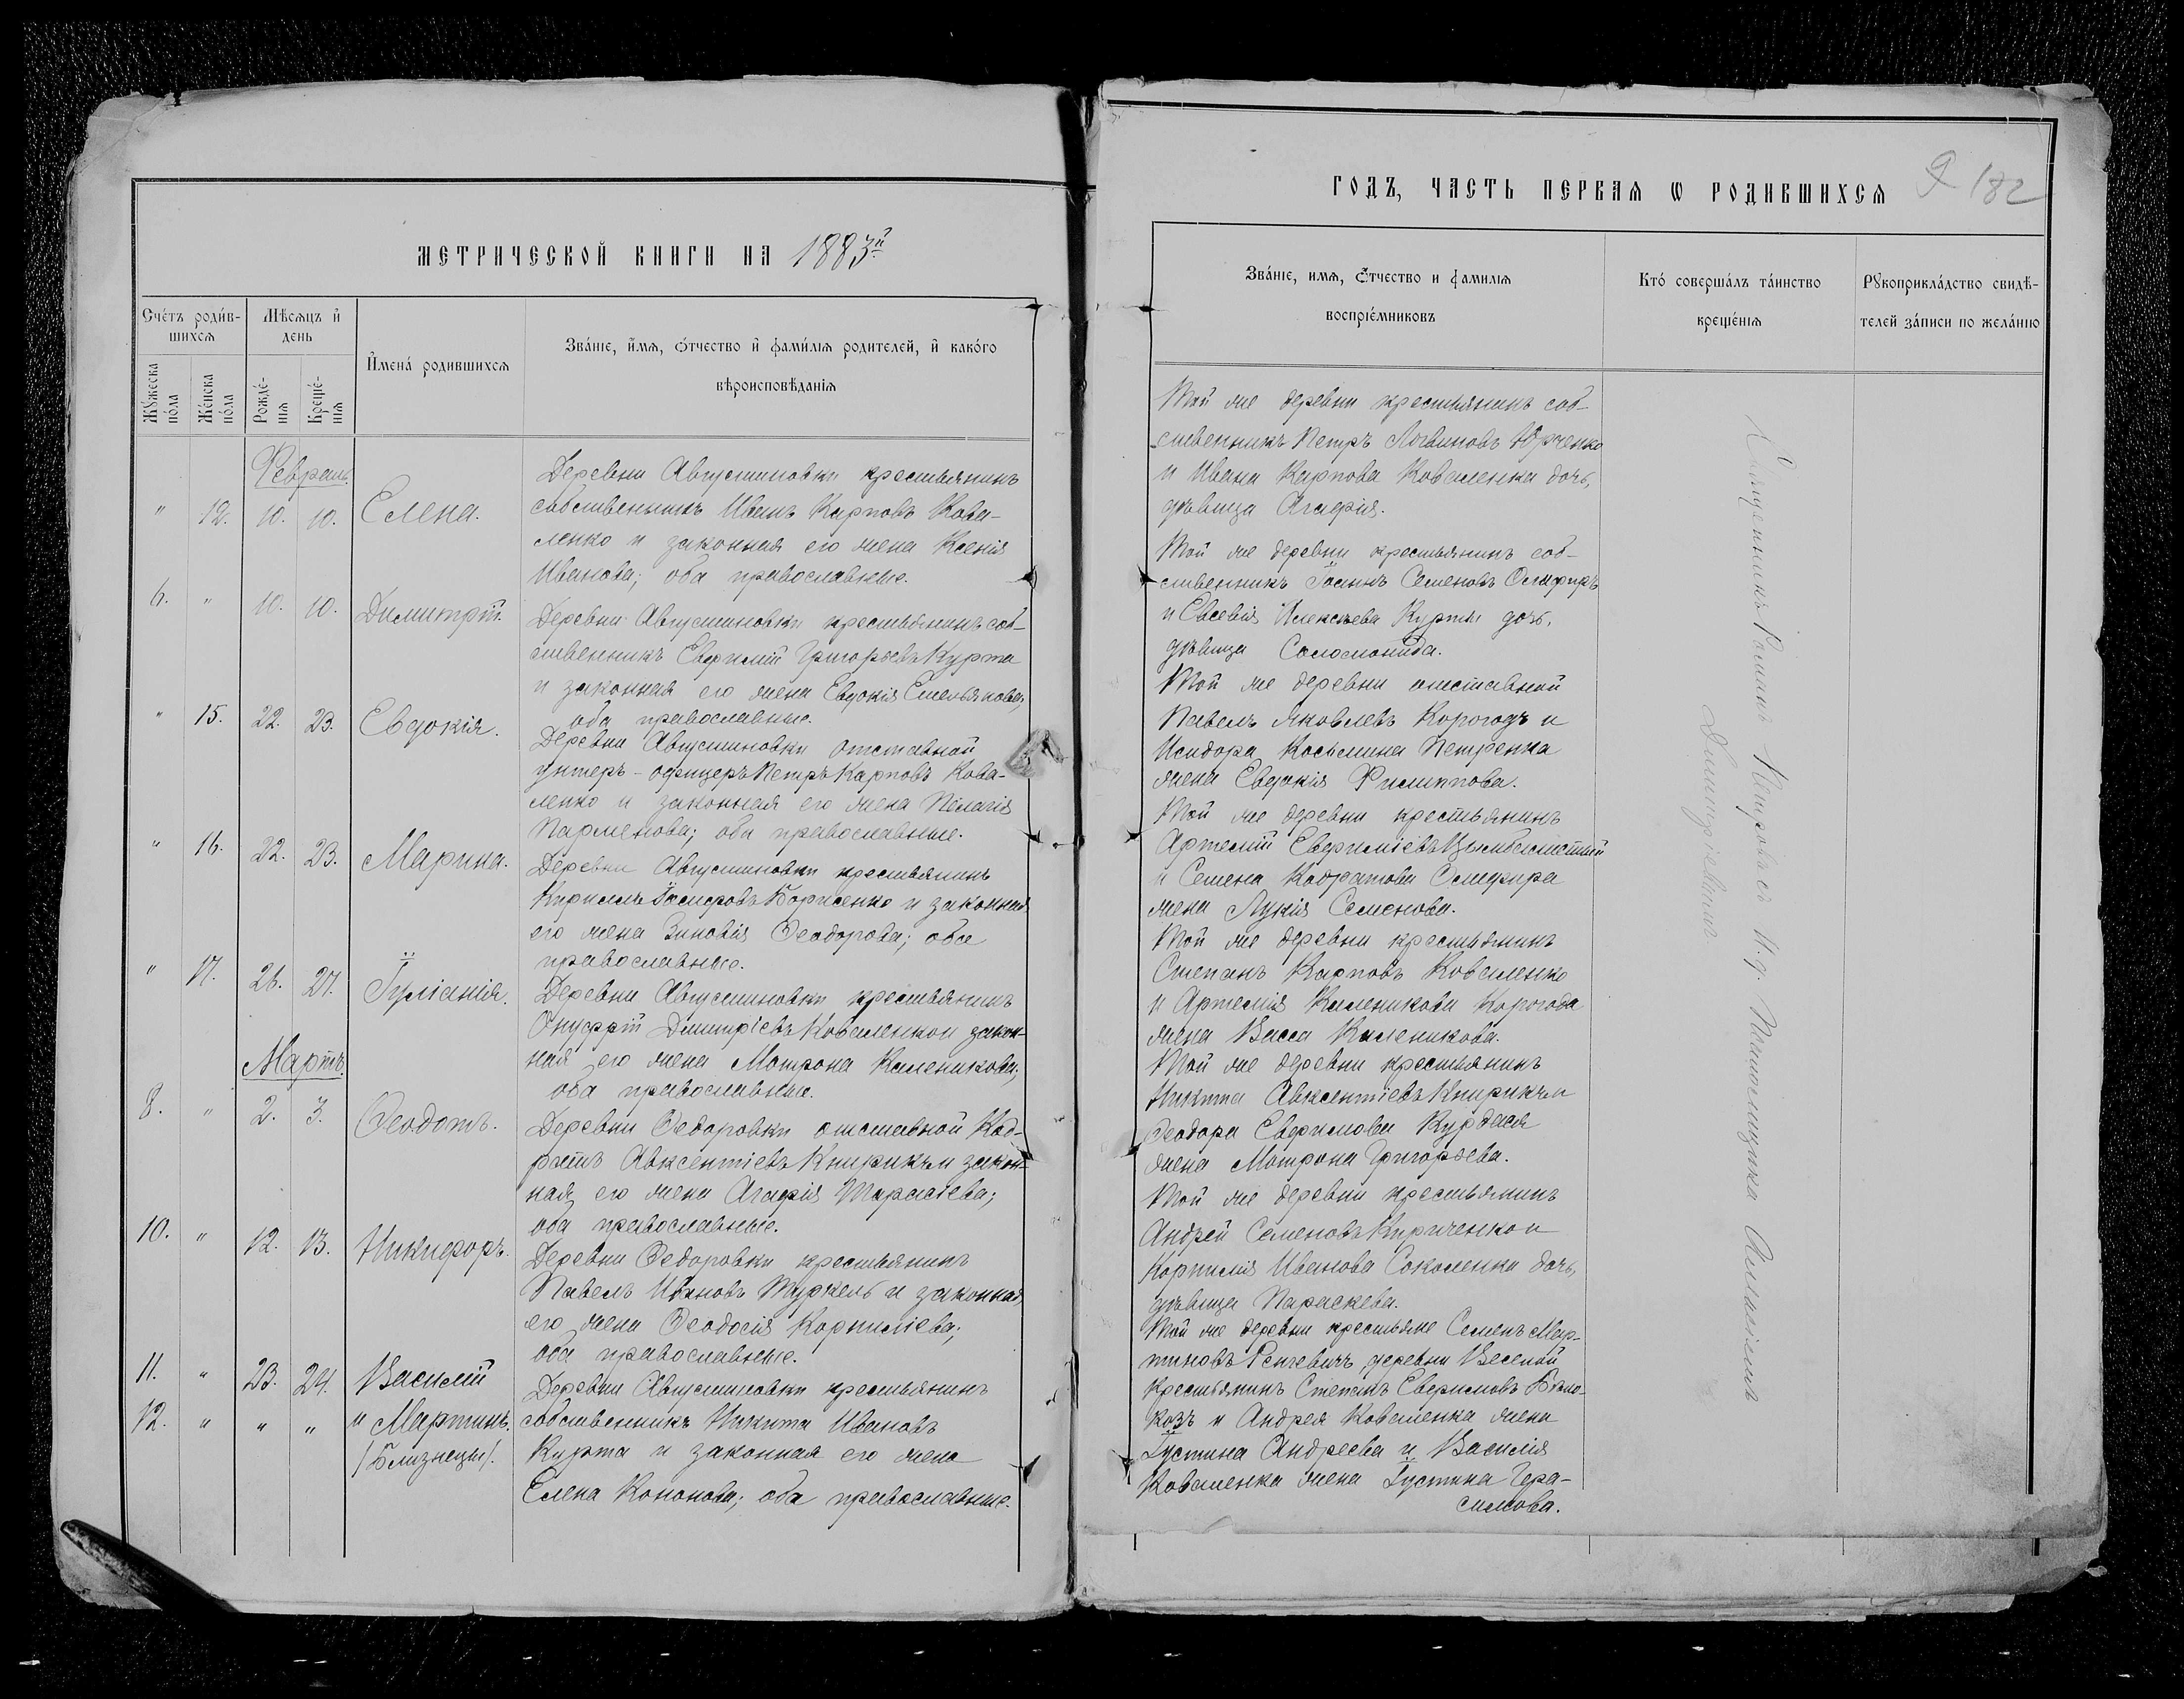 МЕТРИЧЕСКОЙ КНИГИ НА 1883й
Счетъ родив-
шихся
Мѣсяцъ и
день
Имена родившихся
Званіе, имя, отчество и фамилія родителей, и какого
вѣроисповѣданія
Мужеска
пола
Женска
пола
Рожде-
нія
Креще-
нія
Февраль
" 12. 10. 10. Елена.
Деревни Августиновки крестьянинъ
собственникъ Иванъ Карповъ Кова-
ленко и законная его жена Ксенія
Иванова; оба православные.
6. " 10. 10. Димитрій.
Деревни Августиновки крестьянинъ соб-
ственникъ Евфимій Григорьевъ Курта
и законная его жена Евдокія Емельянова;
оба православные.
" 15. 22. 23. Евдокія.
Деревни Августиновки отставной
унтеръ-офицеръ Петръ Карповъ Кова-
ленко и законная его жена Пелагія
Парменова; оба православные.
" 16. 22. 23. Марина.
Деревни Августиновки крестьянинъ
Кириллъ Борисенко и законная
его жена Зиновія Феодорова; оба
православные.
" 17. 26. 27. Іуліанія.
Деревни Августиновки крестьянинъ
Онуфрій Димитріевъ Коваленко и закон-
ная его жена Матрона Каленикова;
оба православные.
Мартъ.
8. " 2. 3. Феодотъ.
Деревни Федоровки отставной Код-
ратъ Авксентіевъ Книрикъ и закон-
ная его жена Агафія Тарасіева;
оба православные.
10. " 12. 13. Никифоръ.
Деревни Федоровки крестьянинъ
Павелъ Ивановъ и законная
его жена Феодосія Корниліева;
оба православные.
11. " 23. 24. Василій
12. " " " и Мартинъ.
/Близнецы/.
Деревни Августиновки крестьянинъ
собственникъ Никита Ивановъ
Курта и законная его жена
Елена Кононова; оба православные.
ГОДЪ, ЧАСТЬ ПЕРВАЯ Ѡ РОДИВШИХСЯ
182
Званіе, имя, отчество и фамилія
воспріемниковъ
Кто совершалъ таинство
крещенія
Рукоприкладство свидѣ-
телей записи по желанію
Той же деревни крестьянинъ соб-
ственникъ Петръ Логвиновъ Юрченко
и Ивана Карпова Коваленка дочь,
дѣвица Агафія.
Той же деревни крестьянинъ соб-
ственникъ Іоаннъ Семеновъ
и Евсевія Алексѣева Курты дочь,
дѣвица Соломонида.
Той же деревни отставной
Павелъ Яковлевъ Корогодъ и
Исидора Косьмина Петренка
жена Евдокія Филиппова.
Той же деревни крестьянинъ
Артемій Евфиміевъ
и Семена Кодратова
жена Лукія Семенова.
Той же деревни крестьянинъ
Степанъ Карповъ Коваленко
и Артемія Каленикова Корогода
жена Васса Каленикова.
Той же деревни крестьянинъ
Никита Авксентіевъ Книрикъ и
Феодора Евфимова Курдася
жена Матрона Григорьева.
Той же деревни крестьянинъ
Андрей Семеновъ Кириченко и
Корнилія Иванова Соколенка дочь,
дѣвица Параскева.
Той же деревни крестьяне Семенъ Мар-
тиновъ деревни Веселой
крестьянинъ Степанъ Евфимовъ Бѣло-
козъ и Андрея Коваленка жена
Іустина Андреева и Василія
Коваленка жена Іустина Гера-
симова.
Священникъ Петровъ съ и. д. Псаломщика